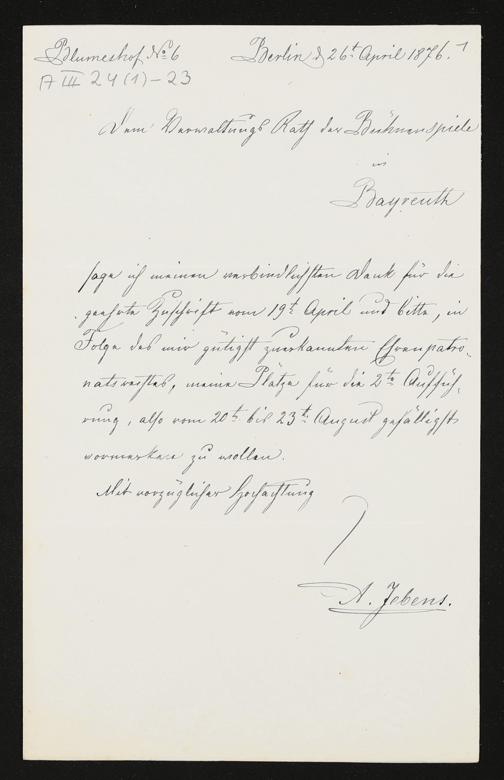 Blumeshof No 6
Berlin d 26t April 1876.
A III 24 (1) - 23
Dem Verwaltungs Rath der Bühnenspiele
in
Bayreuth
sage ich meinen verbindlichsten Dank für die
geehrte Zuschrift vom 19t April und bitte, in
Folge des mir gütigst zuerkannten Ehrenpatro-
natsrechtes, meine Plätze für die 2te Auffüh-
rung, also vom 20t bis 23t August gefälligst
vormerken zu wollen.
Mit vorzüglicher Hochachtung
A. Jebens.